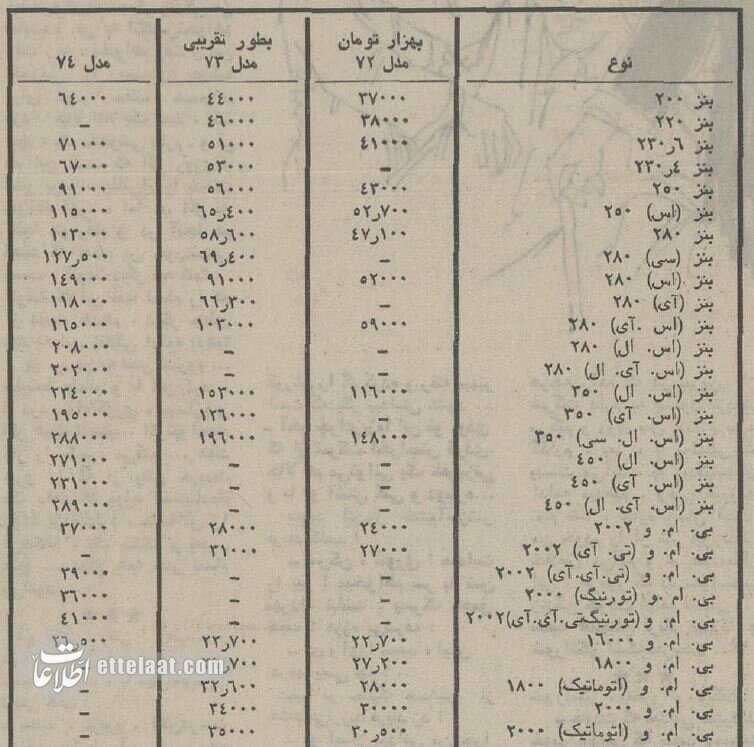 نوع بهزار تومان مدل ۷۲ بطور تقریبی مدل ۷۳ مدل ۷۴
بنز ۲۰۰ ۳۷۰۰۰ ۴۴۰۰۰ ۶۴۰۰۰
بنز ۲۲۰ ۳۸۰۰۰ ۴۶۰۰۰ –
بنز ۶ر۲۳۰ ۴۱۰۰۰ ۵۱۰۰۰ ۷۱۰۰۰
بنز ۴ر۲۳۰ – ۵۳۰۰۰ ۶۷۰۰۰
بنز ۲۵۰ ۴۳۰۰۰ ۵۶۰۰۰ ۹۱۰۰۰
بنز (اس) ۲۵۰ ۷۰۰ر۵۲ ۴۰۰ر۶۵ ۱۱۵۰۰۰
بنز ۲۸۰ ۱۰۰ر۴۷ ۶۰۰ر۵۸ ۱۰۳۰۰۰
بنز (سی) ۲۸۰ – ۴۰۰ر۶۹ ۵۰۰ر۱۲۷
بنز (اس) ۲۸۰ ۵۲۰۰۰ ۹۱۰۰۰ ۱۴۹۰۰۰
بنز (آی) ۲۸۰ – ۳۰۰ر۶۶ ۱۱۸۰۰۰
بنز (اس .آی) ۲۸۰ ۵۹۰۰۰ ۱۰۳۰۰۰ ۱۶۵۰۰۰
بنز (اس. ال) ۲۸۰ – – ۲۰۸۰۰۰
بنز (اس. آی. ال) ۲۸۰ – – ۲۰۲۰۰۰
بنز (اس. ال) ۳۵۰ ۱۱۶۰۰۰ ۱۵۳۰۰۰ ۲۳۴۰۰۰
بنز (اس. آی) ۳۵۰ – ۱۲۶۰۰۰ ۱۹۵۰۰۰
بنز (اس. ال. سی) ۳۵۰ ۱۴۸۰۰۰ ۱۹۶۰۰۰ ۲۸۸۰۰۰
بنز (اس. ال) ۴۵۰ – – ۲۷۱۰۰۰
بنز (اس. آی) ۴۵۰ – – ۲۳۱۰۰۰
بنز (اس. آی. ال) ۴۵۰ – – ۲۸۹۰۰۰
بی. ام. و ۲۰۰۲ ۲۴۰۰۰ ۲۸۰۰۰ ۳۷۰۰۰
بی. ام. و (تی. آی) ۲۰۰۲ ۲۷۰۰۰ ۳۱۰۰۰ –
بی. ام. و (تی.آی.آی) ۲۰۰۲ – – ۳۹۰۰۰
بی. ام .و (تورنیگ) ۲۰۰۰ – – ۳۶۰۰۰
بی. ام. و(تورنیگتی.آی.آی)۲۰۰۲ – – ۴۱۰۰۰
بی. ام. و ۱۶۰۰۰ ۷۰۰ر۲۲ ۷۰۰ر۲۲ ۵۰۰ر۲۶
بی. ام. و ۱۸۰۰ ۲۰۰ر۲۷
بی. ام. و (اتوماتیک) ۱۸۰۰ ۲۸۰۰۰ ۶۰۰ر۳۲ –
بی. ام. و ۲۰۰۰ ۳۰۰۰۰ ۳۴۰۰۰ –
بی. ام. و (اتوماتیک) ۲۰۰۰ ۵۰۰ر۳۰ ۳۵۰۰۰ –
اطلاعات ettelaat.com